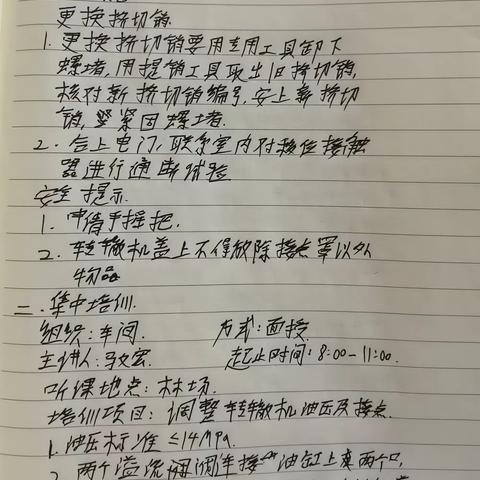 更换挤切销.
1. 更换挤切销要用专用工具卸下
螺堵,用提销工具取出旧挤切销,
核对新挤切销编号,安上新挤切
销,坚紧固螺堵.
2. 合上电门,联系室内对移位接触
器进行通断试验
安全提示
1. 申请手摇把.
2. 转辙机盖上不得放除接点罩以外
物品
二. 集中培训.
组织:车间. 方式:面授.
主讲人: 起止时间:8:00-11:00.
听课地点:林场.
培训项目:调整转辙机油压及接点.
1. 油压标准≤14MPa.
2. 两个溢流阀 连接 油缸上 两个口,